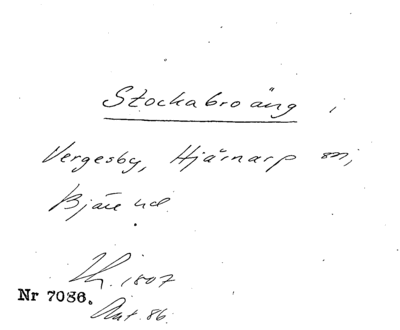 Stockabroäng i
Vergesby, Hjärnarp sn,
Bjäre hd
Lh. 1807
Nr 7086.
Ant. 86.